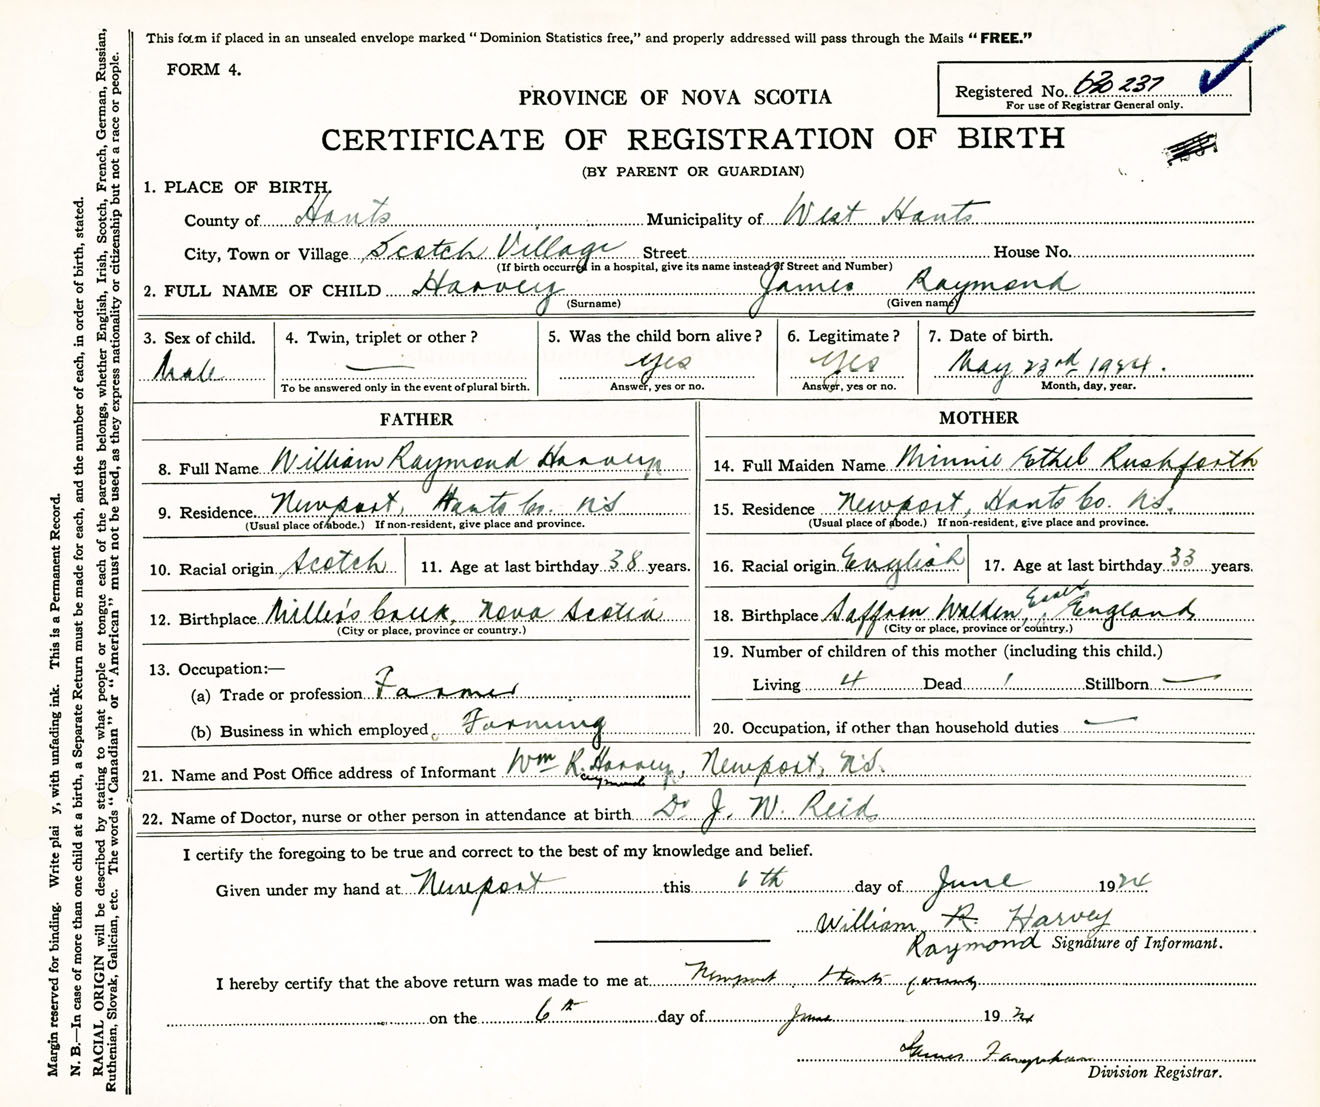 This form if placed in an unsealed envelope marked "Dominion Statistics free," and properly addressed will pass through the Mails "FREE."
FORM 4.
Registered No. 237
For use of Registrar General only.
PROVINCE OF NOVA SCOTIA
CERTIFICATE OF REGISTRATION OF BIRTH
(BY PARENT OR GUARDIAN)
1. PLACE OF BIRTH.
County of Hants Municipality of West Hants
City, Town or Village Scotch Village Street House No.
(If birth occurred in a hospital, give its name instead of Street and Number)
2. FULL NAME OF CHILD Harvey James Raymond
(Surname) (Given name)
3. Sex of child. 4. Twin, triplet or other? 5. Was the child born alive? 6. Legitimate? 7. Date of birth.
Male — yes yes May 23rd 1924.
To be answered only in the event of plural birth. Answer, yes or no. Answer, yes or no. Month, day, year.
FATHER
8. Full Name William Raymond Harvey
9. Residence Newport, Hants Co. NS
(Usual place of abode.) If non-resident, give place and province.
10. Racial origin Scotch 11. Age at last birthday 38 years.
12. Birthplace Miller's Creek, Nova Scotia
(City or place, province or country.)
13. Occupation:—
(a) Trade or profession Farmer
(b) Business in which employed Farming
MOTHER
14. Full Maiden Name Minnie Ethel Rushforth
15. Residence Newport, Hants Co. NS.
(Usual place of abode.) If non-resident, give place and province.
16. Racial origin English 17. Age at last birthday 33 years.
18. Birthplace Saffron Walden, Essex, England
(City or place, province or country.)
19. Number of children of this mother (including this child.)
Living 4 Dead 1 Stillborn —
20. Occupation, if other than household duties —
21. Name and Post Office address of Informant Wm R. Harvey, Newport, N.S.
aymond
22. Name of Doctor, nurse or other person in attendance at birth Dr J. W. Reid
I certify the foregoing to be true and correct to the best of my knowledge and belief.
Given under my hand at Newport this 6th day of June 1924
William R. Harvey
Raymond Signature of Informant.
I hereby certify that the above return was made to me at Newport Hants County
on the 6th day of June 1924
James
Division Registrar.
Margin reserved for binding. Write plai y, with unfading ink. This is a Permanent Record.
N. B.—In case of more than one child at a birth, a Separate Return must be made for each, and the number of each, in order of birth, stated.
RACIAL ORIGIN will be described by stating to what people or tongue each of the parents belongs, whether English, Irish, Scotch, French, German, Russian,
Ruthenian, Slovak, Galician, etc. The words "Canadian" or "American" must not be used, as they express nationality or citizenship but not a race or people.